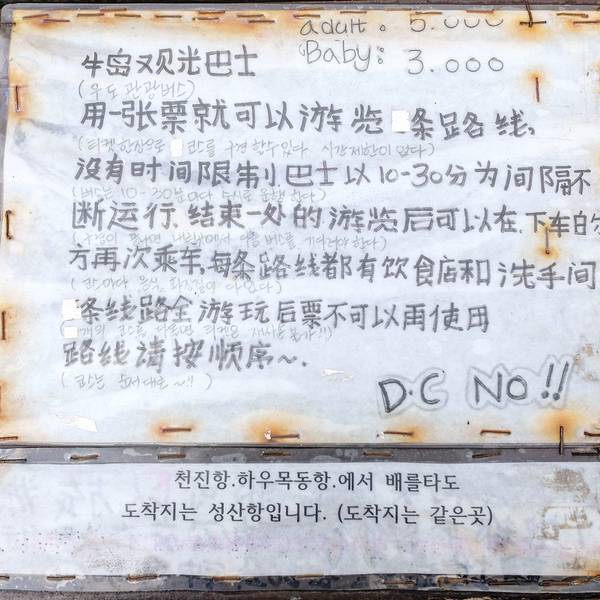 adult: 5.000
Baby: 3.000
牛岛观光巴士
(우도 관광버스)
用一张票就可以游览 条路各线,
(티켓한장으로 코스를 구경할수있다 시간제한이 없다)
没有时间限制 巴士以10-30分为间隔不
(버스는 10-30분마다 수시로 운행한다)
断运行,结束一处的游览后可以在,下车的
方再次乘车,每条路线都有饮食店和洗手间
(코스마다 음식, 화장실이 다있다)
条线路全游玩后票不可以再使用
路线请按顺序~.
(코스는 순서대로~!!)
D·C NO!!
천진항.하우목동항.에서 배를타도
도착지는 성산항입니다. (도착지는 같은곳)